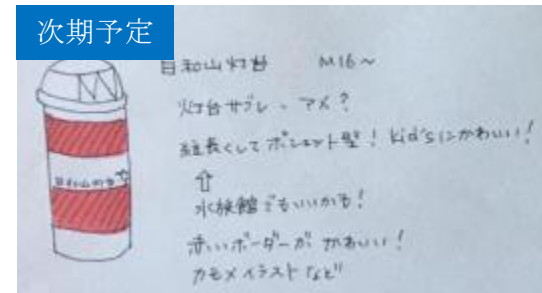 次期予定
日和山灯台 M16～
灯台サブレ、アメ?
紐長くしてポシェット型! kid'sにかわいい!
⇧
水族館でもいいかも!
赤いボーダーが かわいい!
カモメイラストなど
日和山灯台